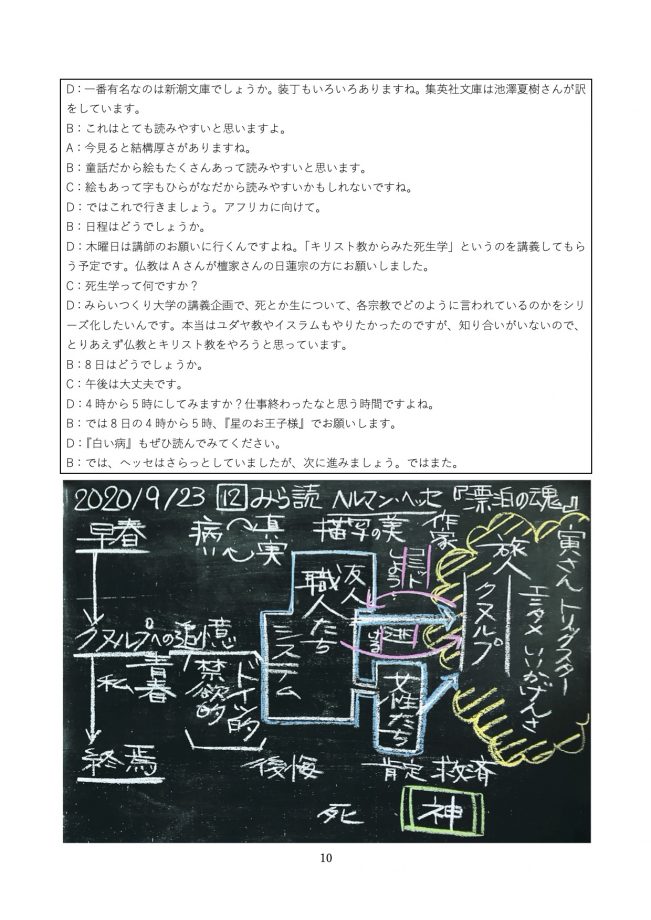 D：一番有名なのは新潮文庫でしょうか。装丁もいろいろありますね。集英社文庫は池澤夏樹さんが訳
をしています。
B：これはとても読みやすいと思いますよ。
A：今見ると結構厚さがありますね。
B：童話だから絵もたくさんあって読みやすいと思います。
C：絵もあって字もひらがなだから読みやすいかもしれないですね。
D：ではこれで行きましょう。アフリカに向けて。
B：日程はどうでしょうか。
D：木曜日は講師のお願いに行くんですよね。「キリスト教からみた死生学」というのを講義してもら
う予定です。仏教は A さんが檀家さんの日蓮宗の方にお願いしました。
C：死生学って何ですか？
D：みらいつくり大学の講義企画で、死とか生について、各宗教でどのように言われているのかをシリ
ーズ化したいんです。本当はユダヤ教やイスラムもやりたかったのですが、知り合いがいないので、
とりあえず仏教とキリスト教をやろうと思っています。
B：8 日はどうでしょうか。
C：午後は大丈夫です。
D：4 時から 5 時にしてみますか？仕事終わったなと思う時間ですよね。
B：では 8 日の 4 時から 5 時、『星のお王子様』でお願いします。
D：『白い病』もぜひ読んでみてください。
B：では、ヘッセはさらっとしていましたが、次に進みましょう。ではまた。
2020/9/23 12 みら読 ヘルマン・ヘッセ 『漂泊の魂』
早春
病い
真実
描写の美
作家
寅さん トリックスター
エニタメ いいかげんさ
旅人
クヌルプ
コミットしよう
友人
職人たち
システム
女性たち
クヌルプへの追憶
私
青春
ドイツ的
禁欲的
終焉
後悔
肯定 救済
死
神
10